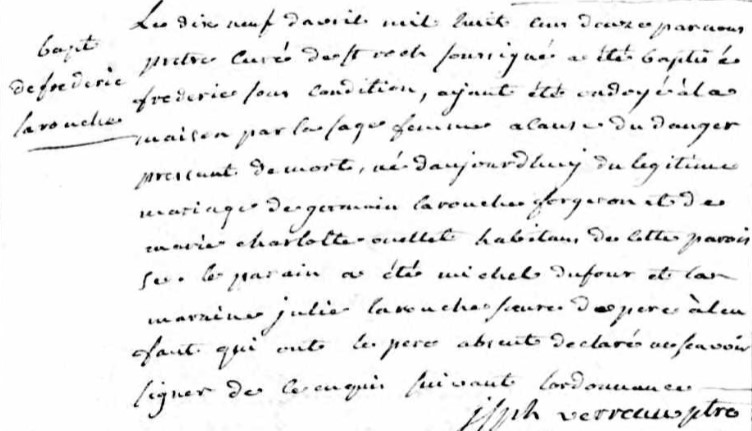 bapt
de frederic
larouche
Le dix neuf davril mil huit cens douze par nous
pretre curé de St roch soussigné a été baptisé
frederic sous condition, ayant été ondoyé à la
maison par la sage femme a cause du danger
pressant de mort, né daujourdhuy du legitime
mariage de germain larouche forgeron et de
marie charlotte ouellet habitans de cette parois
se. le parain a été michel dufour et la
maraine julie larouche soeure de pere à len
fant qui ont le pere absent declaré ne scavoir
signer de ce enquis suivant lordonnance
jsph verreau ptre